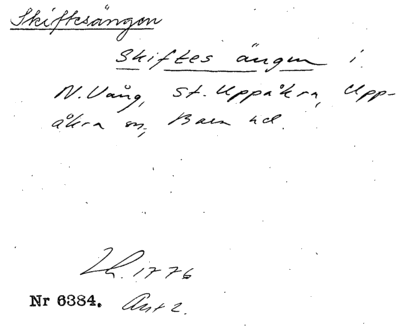 Skiftesängen
Skiftes ängen i
N. Vång, St. Uppåkra, Upp-
åkra sn, Bara hd.
Lh. 1776
Nr 6384. Akt 2.